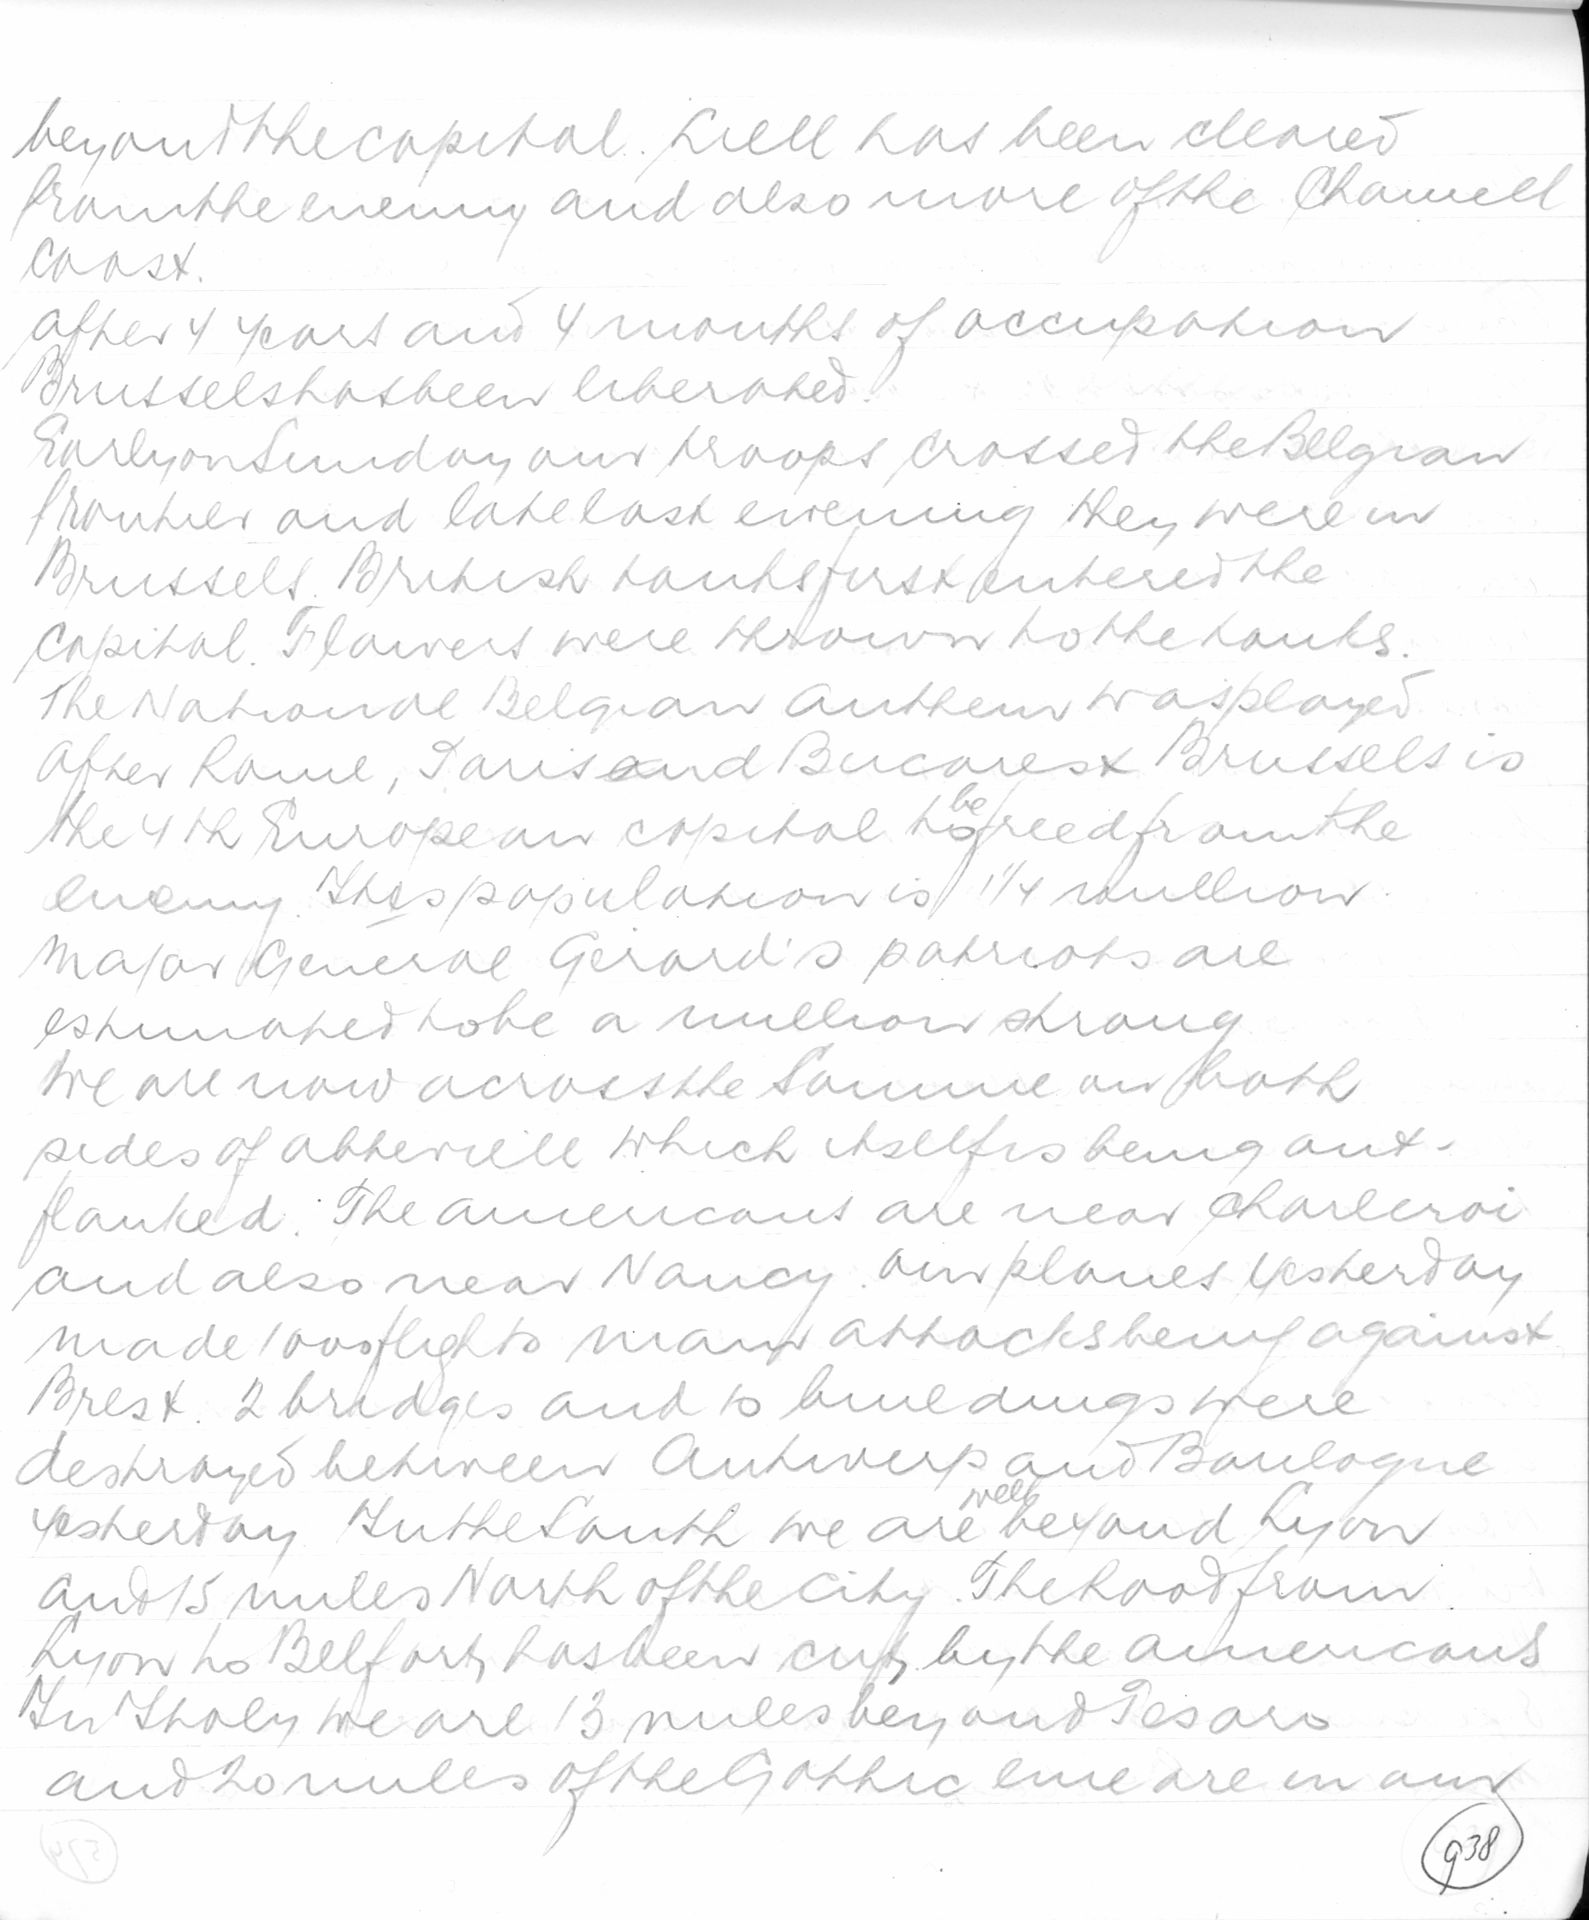 beyond the capital. Lill has been cleared
from the enemy and also more of the Channel
coast.
After 4 years and 4 months of occupation
Brussels has been liberated.
Early on Sunday our troops crossed the Belgian
frontier and late last evening they were in
Brussels. British tanks first entered the
capital. Flowers were thrown to the tanks.
The National Belgian Anthem was played
After Rome, Paris and Bucarest Brussels is
the 4th European capital to be freed from the
enemy. Its population is 1 1/4 million.
Major General Gerard's patriots are
estimated to be a million strong
We are now across the Somme on both
sides of Abbeville which itself is being out-
flanked. The Americans are near Charleroi
and also near Nancy. Our planes yesterday
made 1000 flights many attacks being against
Brest. 2 bridges and 10 buildings were
destroyed between Antwerp and Boulogne
yesterday. In the South we are well beyond Lyon
and 15 miles North of the City. The Road from
Lyon to Belfort has been cut by the Americans
In Italy we are 13 miles beyond Pesaro
and 20 miles of the Gothic line are in our
938